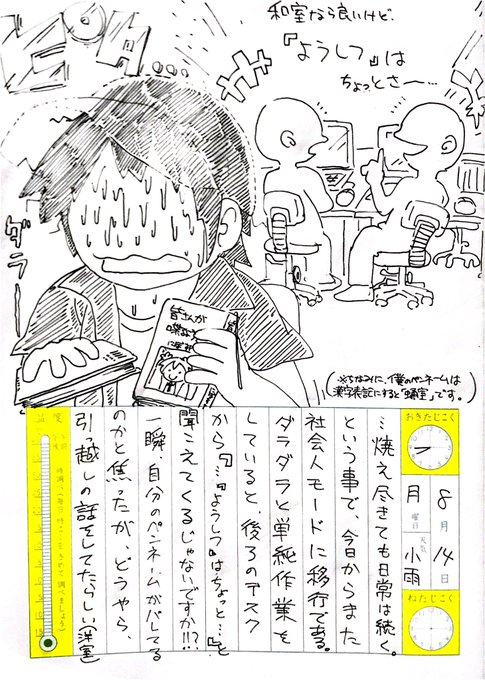 和室なら良いけど、
『ようしつ』は
ちょっとさー…
ピタ…
ダラー
皆さんが
(※ちなみに、僕のペンネームは
漢字表記にすると「蛹室」です。)
おきたじこく
8月14日
月曜日
天気 小雨
ねたじこく
…焼え尽きても日常は続く。
という事で、今日からまた
社会人モードに移行である。
ダラダラと単純作業を
していると、後ろのデスク
から『…ようしつ』はちょっと…』と
聞こえてくるじゃないですか!?
一瞬、自分のペンネームがバレてる
のかと焦ったが、どうやら、
引っ越しの話をしてたらしい(洋室)
温度